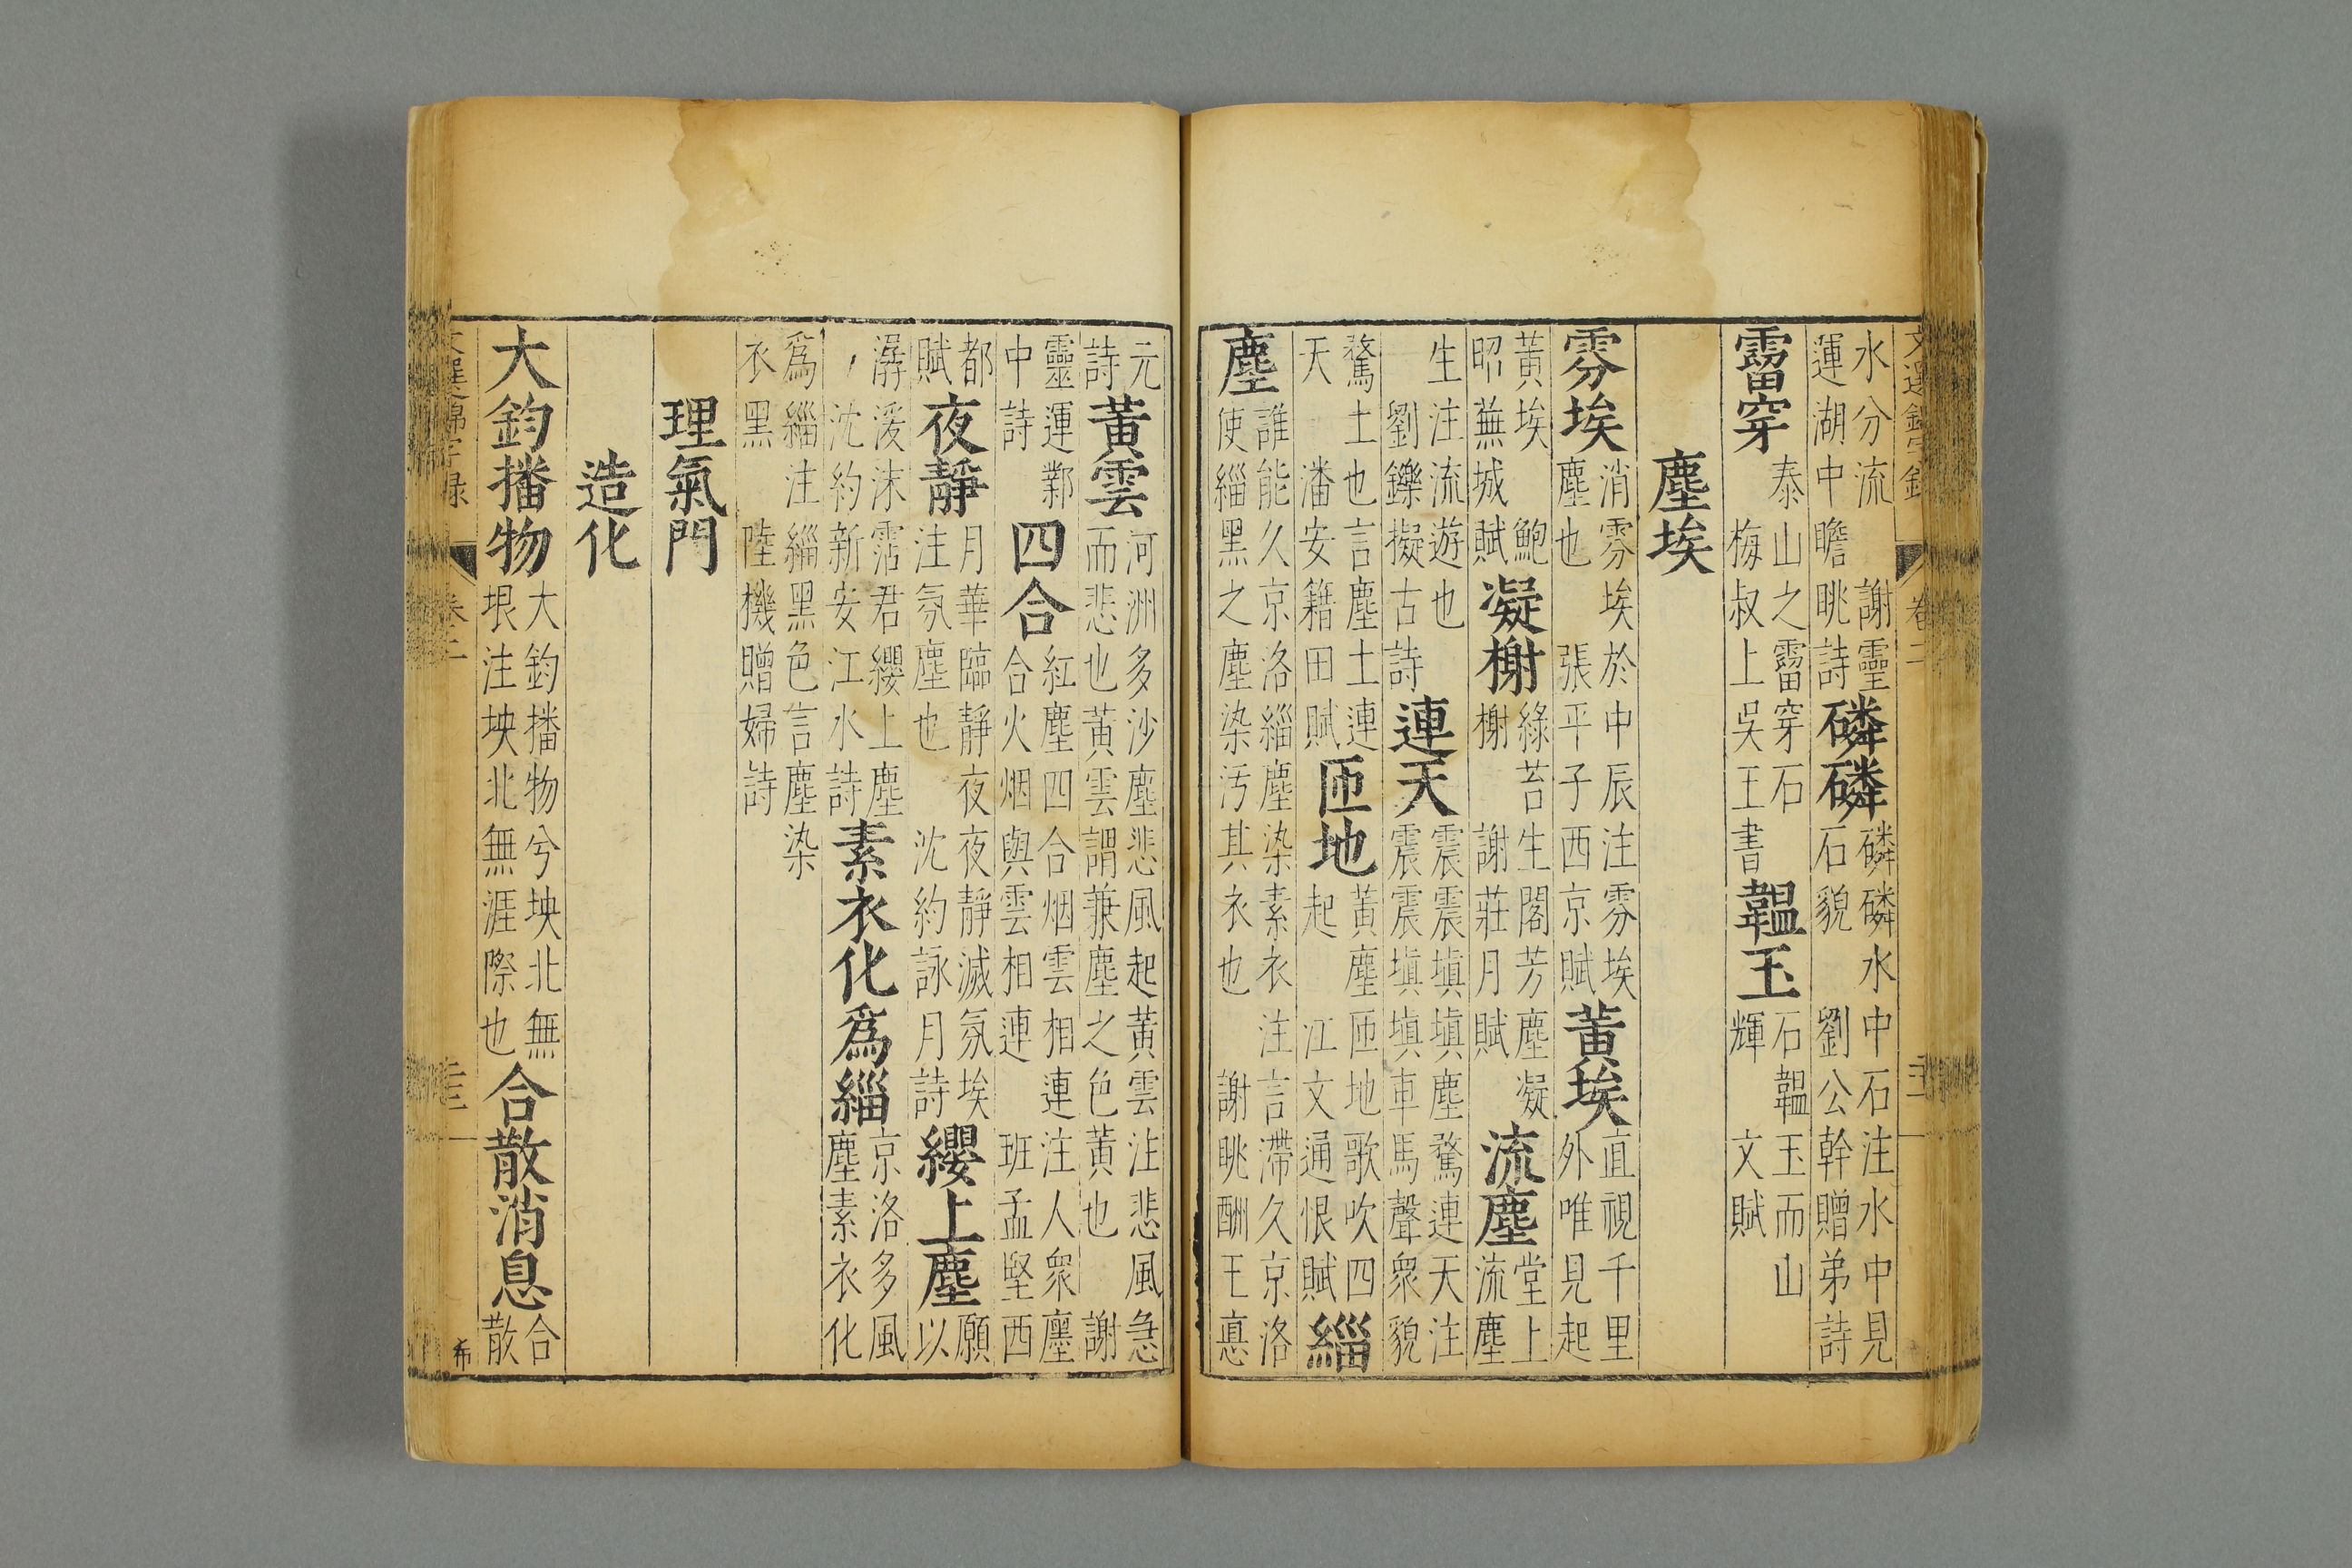 文選錦字錄 卷二
水分流 謝靈運湖中瞻眺詩磷磷磷磷水中石注水中見石貌 劉公幹贈弟詩
霤穿泰山之霤穿石梅叔上吳王書韞玉石韞玉而山輝 文賦
塵埃
雰埃消雰埃於中辰注雰埃塵也 張平子西京賦黃埃直視千里外唯見起
黃埃 鮑昭蕪城賦凝榭綠苔生閣芳塵凝榭 謝莊月賦流塵堂上流塵
生注流遊也劉鑠擬古詩連天震震塡塡塵騖連天注震震塡塡車馬聲衆貌
騖土也言塵土連天 潘安籍田賦匝地黃塵匝地歌吹四起 江文通恨賦緇
塵誰能久京洛緇塵染素衣注言滯久京洛使緇黑之塵染污其衣也 謝眺酬王悳
元詩黃雲河洲多沙塵悲風起黃雲注悲風急而悲也黃雲謂兼塵之色黃也 謝
靈運鄴中詩四合紅塵四合烟雲相連注人衆塵合火烟與雲相連 班孟堅西
都賦夜靜月華臨靜夜夜靜滅氛埃注氛塵也 沈約詠月詩纓上塵願以
潺湲沫霑君纓上塵 沈約新安江水詩素衣化爲緇京洛多風塵素衣化
爲緇注緇黑色言塵染衣黑 陸機贈婦詩
理氣門
造化
大鈞播物大鈞播物兮坱北無垠注坱北無涯際也合散消息合散
文選錦字錄 卷二 希